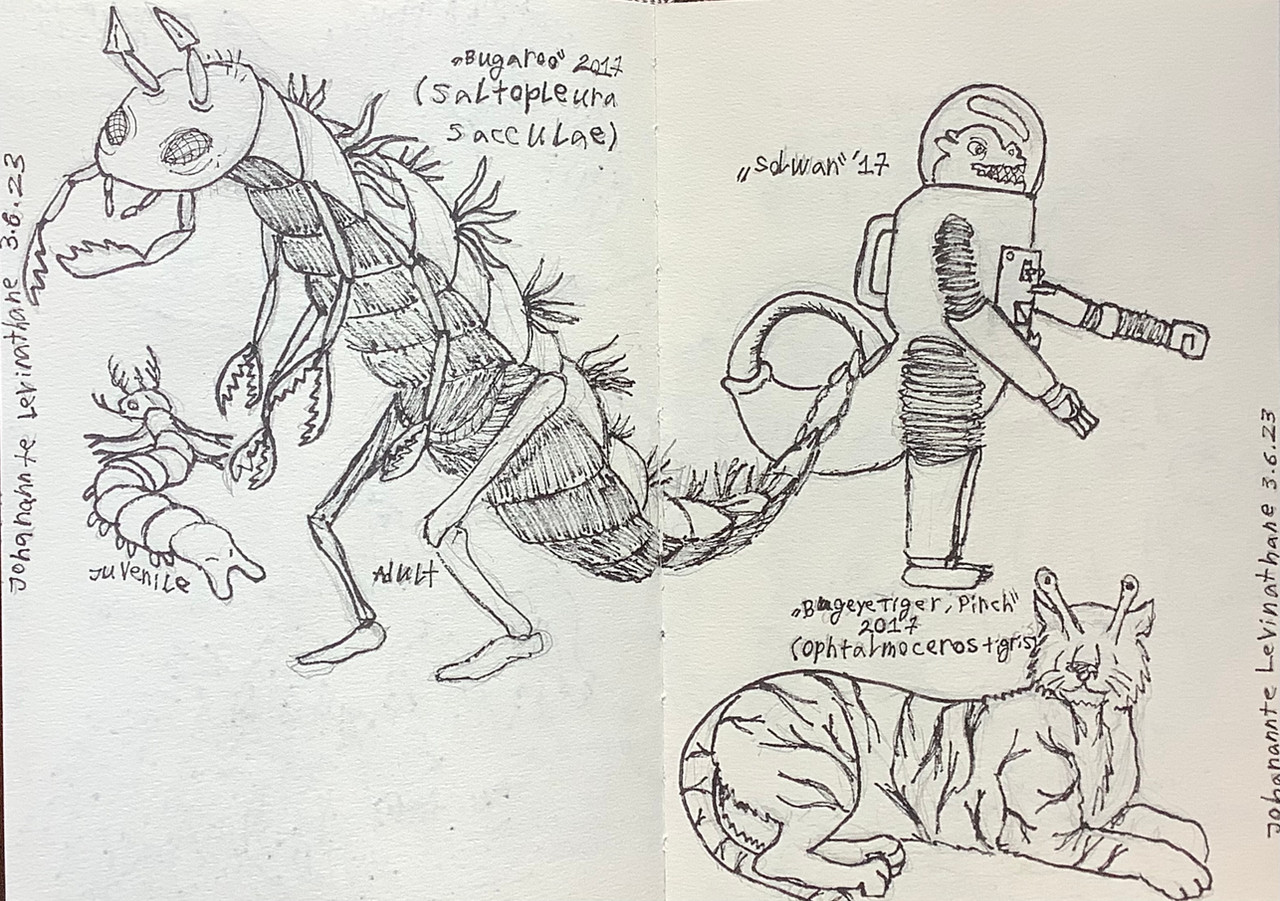 „Bugaroo“ 2017
(Saltopleura
sacculae)
Juvenile
Adult
Johanannte Levinathane 3.6.23
„Solwan“ '17
„Bugeye Tiger, Pinch“
2017
(ophtalmoceros tgris)
Johanannte Levinathane 3.6.23